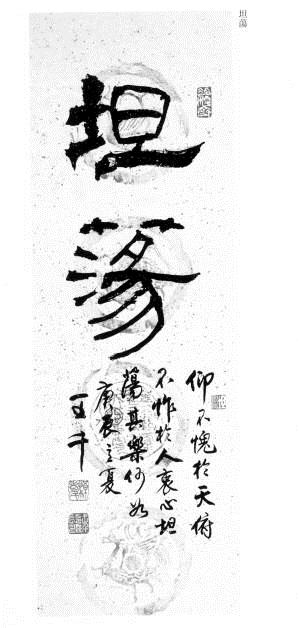 坦蕩
坦蕩
仰不愧於天俯
不怍於人衷心坦
蕩其樂何如
庚辰立夏
王千